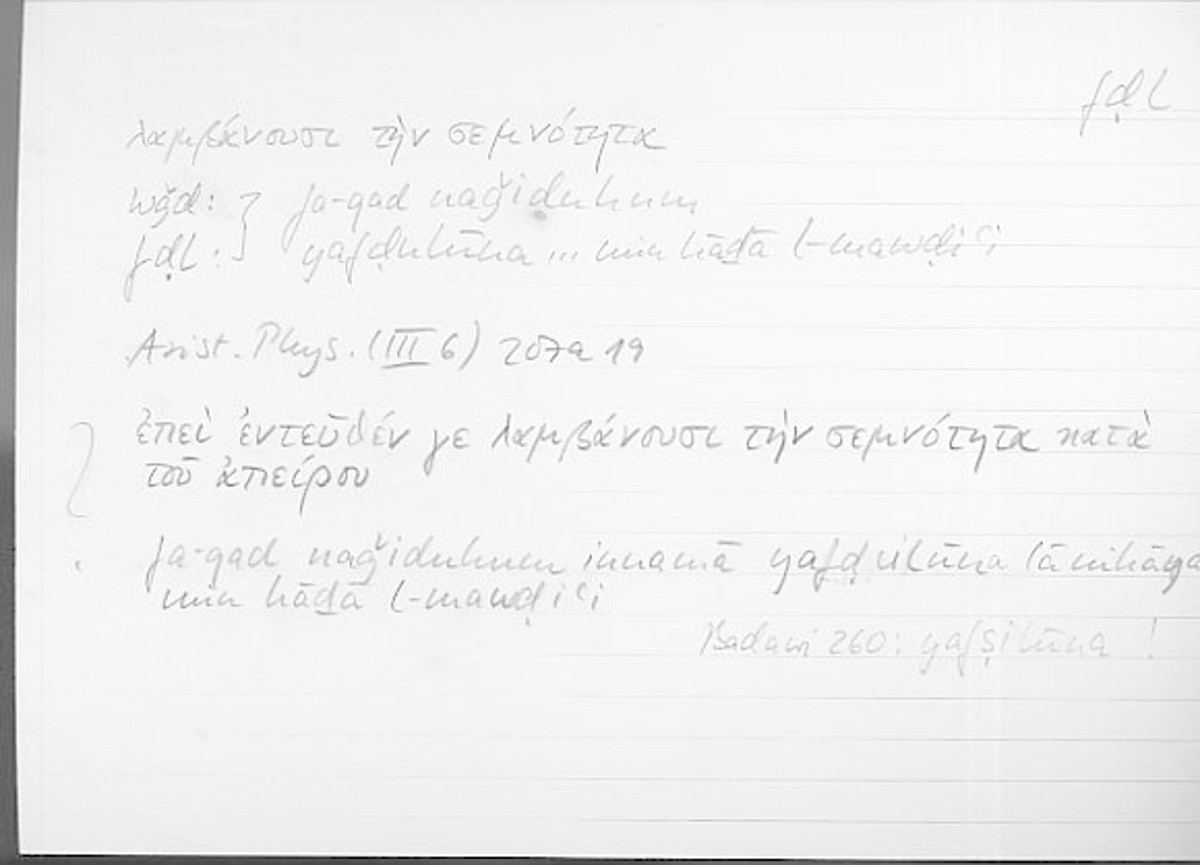 fḍl
λαμβάνουσι τὴν σεμνότητα
wǧd: } fa-qad naǧiduhum
fḍl: } yafḍulūna ... min hāḏā l-mawḍiʿi
Arist. Phys. (III 6) 207a 19
ἐπεὶ ἐντεῦθέν γε λαμβάνουσι τὴν σεμνότητα κατὰ
τοῦ ἀπείρου
fa-qad naǧiduhum innamā yafḍulūna lā nihāya
min hāḏā l-mawḍiʿi
Badawi 260: yafṣilūna !